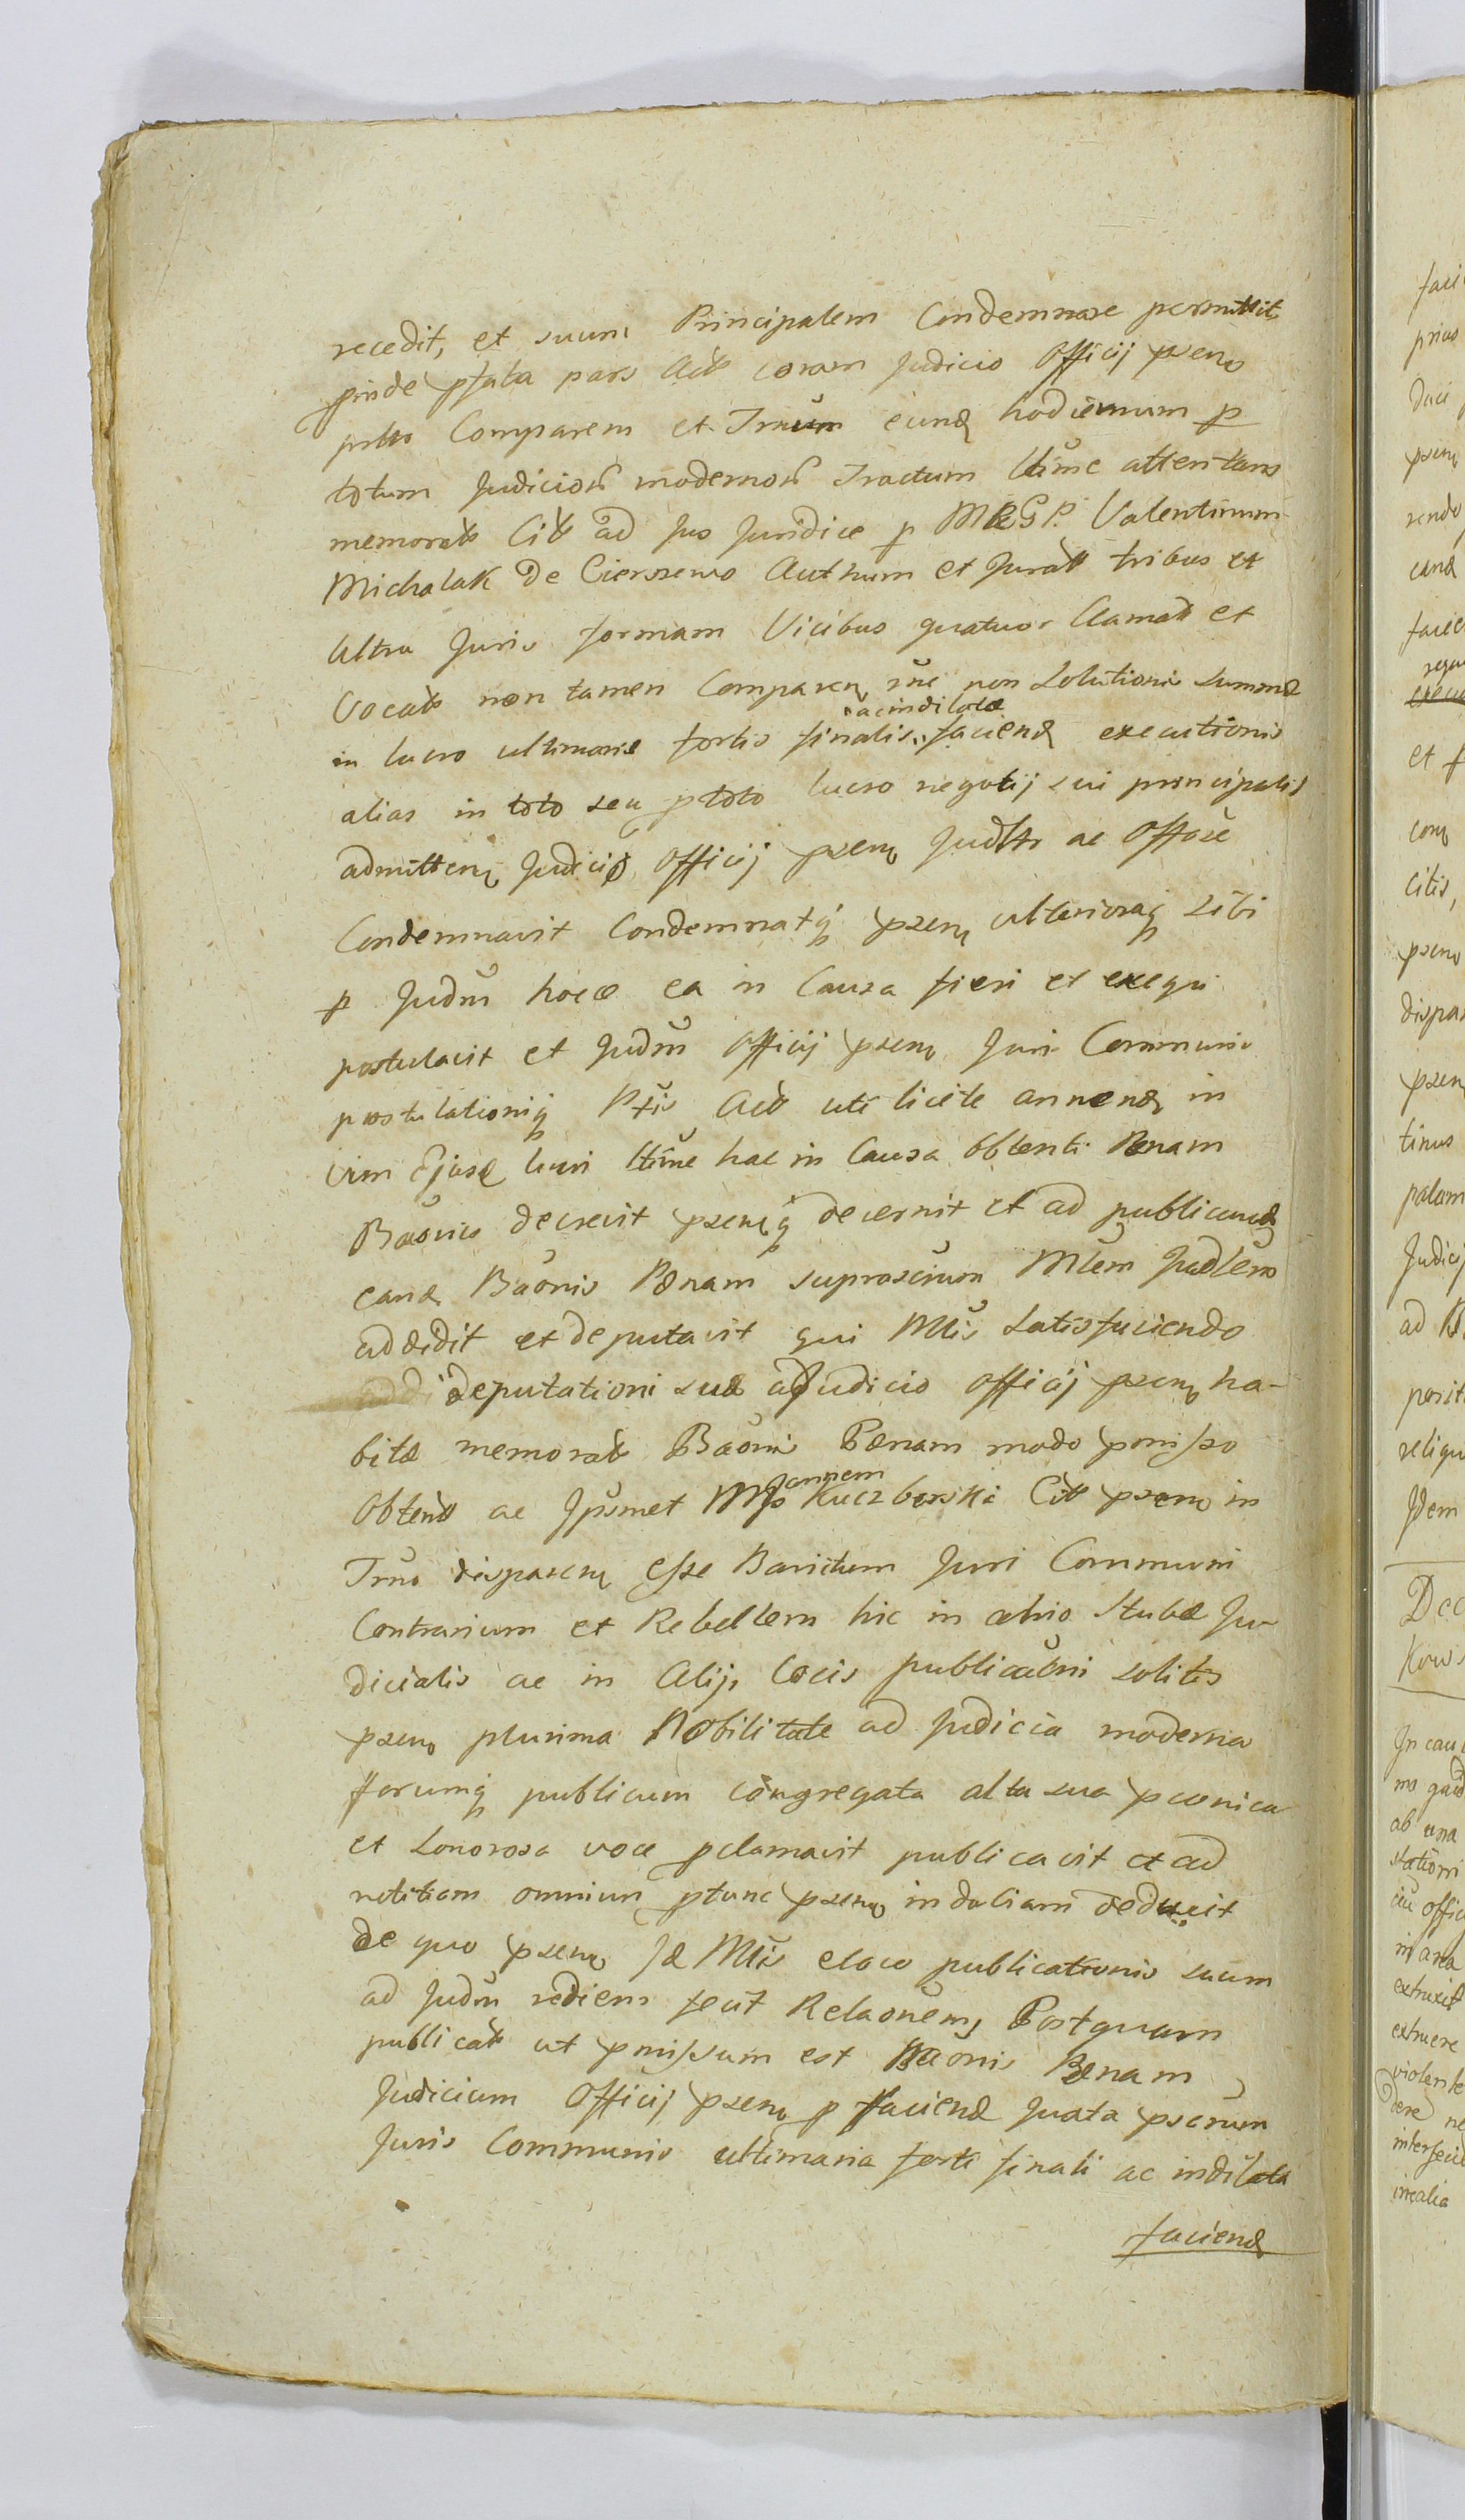 recedit, et suum Principalem Condemnare permittit,
pinde pfata pars Act coram Judicio Officij psens
prlts Comparens et Trnum eund hodiernum p
totum Judicior modernor Tractum ltime attentans
memorat Cit ad Jus Juridice p MRGP. Valentinum
Michalak de Cierszewo Authum et Jurat tribus et
ultra Juris formam Vicibus quatuor Clamat et
Vocat non tamen Comparen, sue non Solutioni Summæ
ac indilatæ
in lucro ultimariæ fortis finalis faciend executionis
alias in toto seu ptoto lucro negotij sui principalis
admitten Judicio, Officij psens Judltr ac Offose
Condemnavit Condemnatq psens ulterioraq Sibi
p Judm hocce ea in Causa fieri et exequi
postulavit et Judm Officij psens Juri Communi
postulationiq Ptis Act uti licite annend in
vim Ejusd lucri ltime hac in Causa Obtenti Pænam
Baonis decrevit psensq decernit et ad publicand
eand Baonis Pænam suprascrium Mlem Judlem
addidit et deputavit qui Mlis Satisfaciendo
deputationi suæ a Judicio Officij psens ha-
bitæ memorat Baonis Pænam modo pmisso
Obtent ac Ipsmet Mfs Kuczborski Cit psens in
annem
Trno disparen esse Banitum Juri Communi
Contrarium et Rebellem hic in ostio Stubæ Ju-
dicialis ac in Alijs Locis publicaoni solitis
psens plurima Nobilitate ad Judicia moderna
forumq publicum congregata alta sua præconica
et Sonorosa voce pclamavit publicavit et ad
notitiam omnium ptunc psens indubiam deduxit
de quo psens Id Mlis eloco publicationis suum
ad Judm rediens fecit Relaonem, Postquam
publicat ut pmissum est Baonis Pænam
Judicium Officij psens p faciend Juxta pscrum
Juris Communis ultimaria forti finali ac indilata
faciend